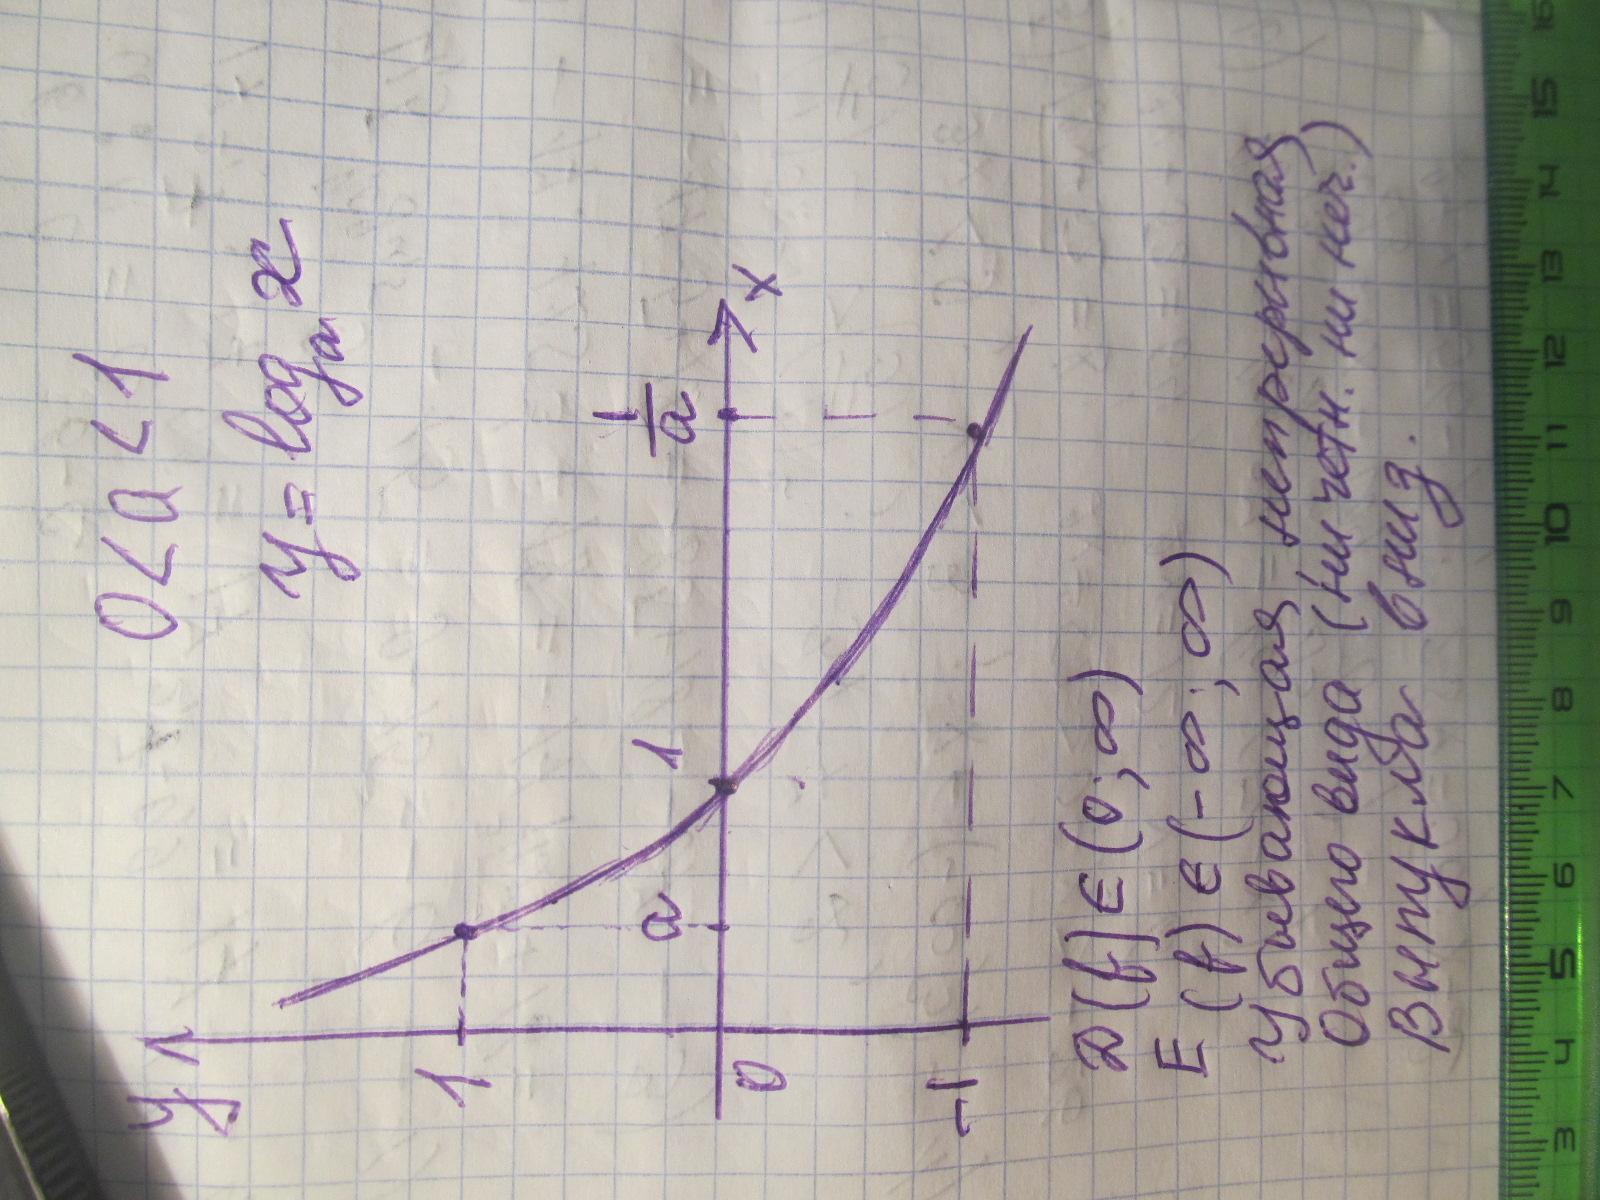 0<a<1
y=logₐx
y
1
a
1
1/a
x
0
-1
D(f)∈(0;∞)
E(f)∈(-∞;∞)
Убывающая непрерывная
Общего вида (ни четн. ни неч.)
Выпукла вниз.
3 4 5 6 7 8 9 10 11 12 13 14 15 16